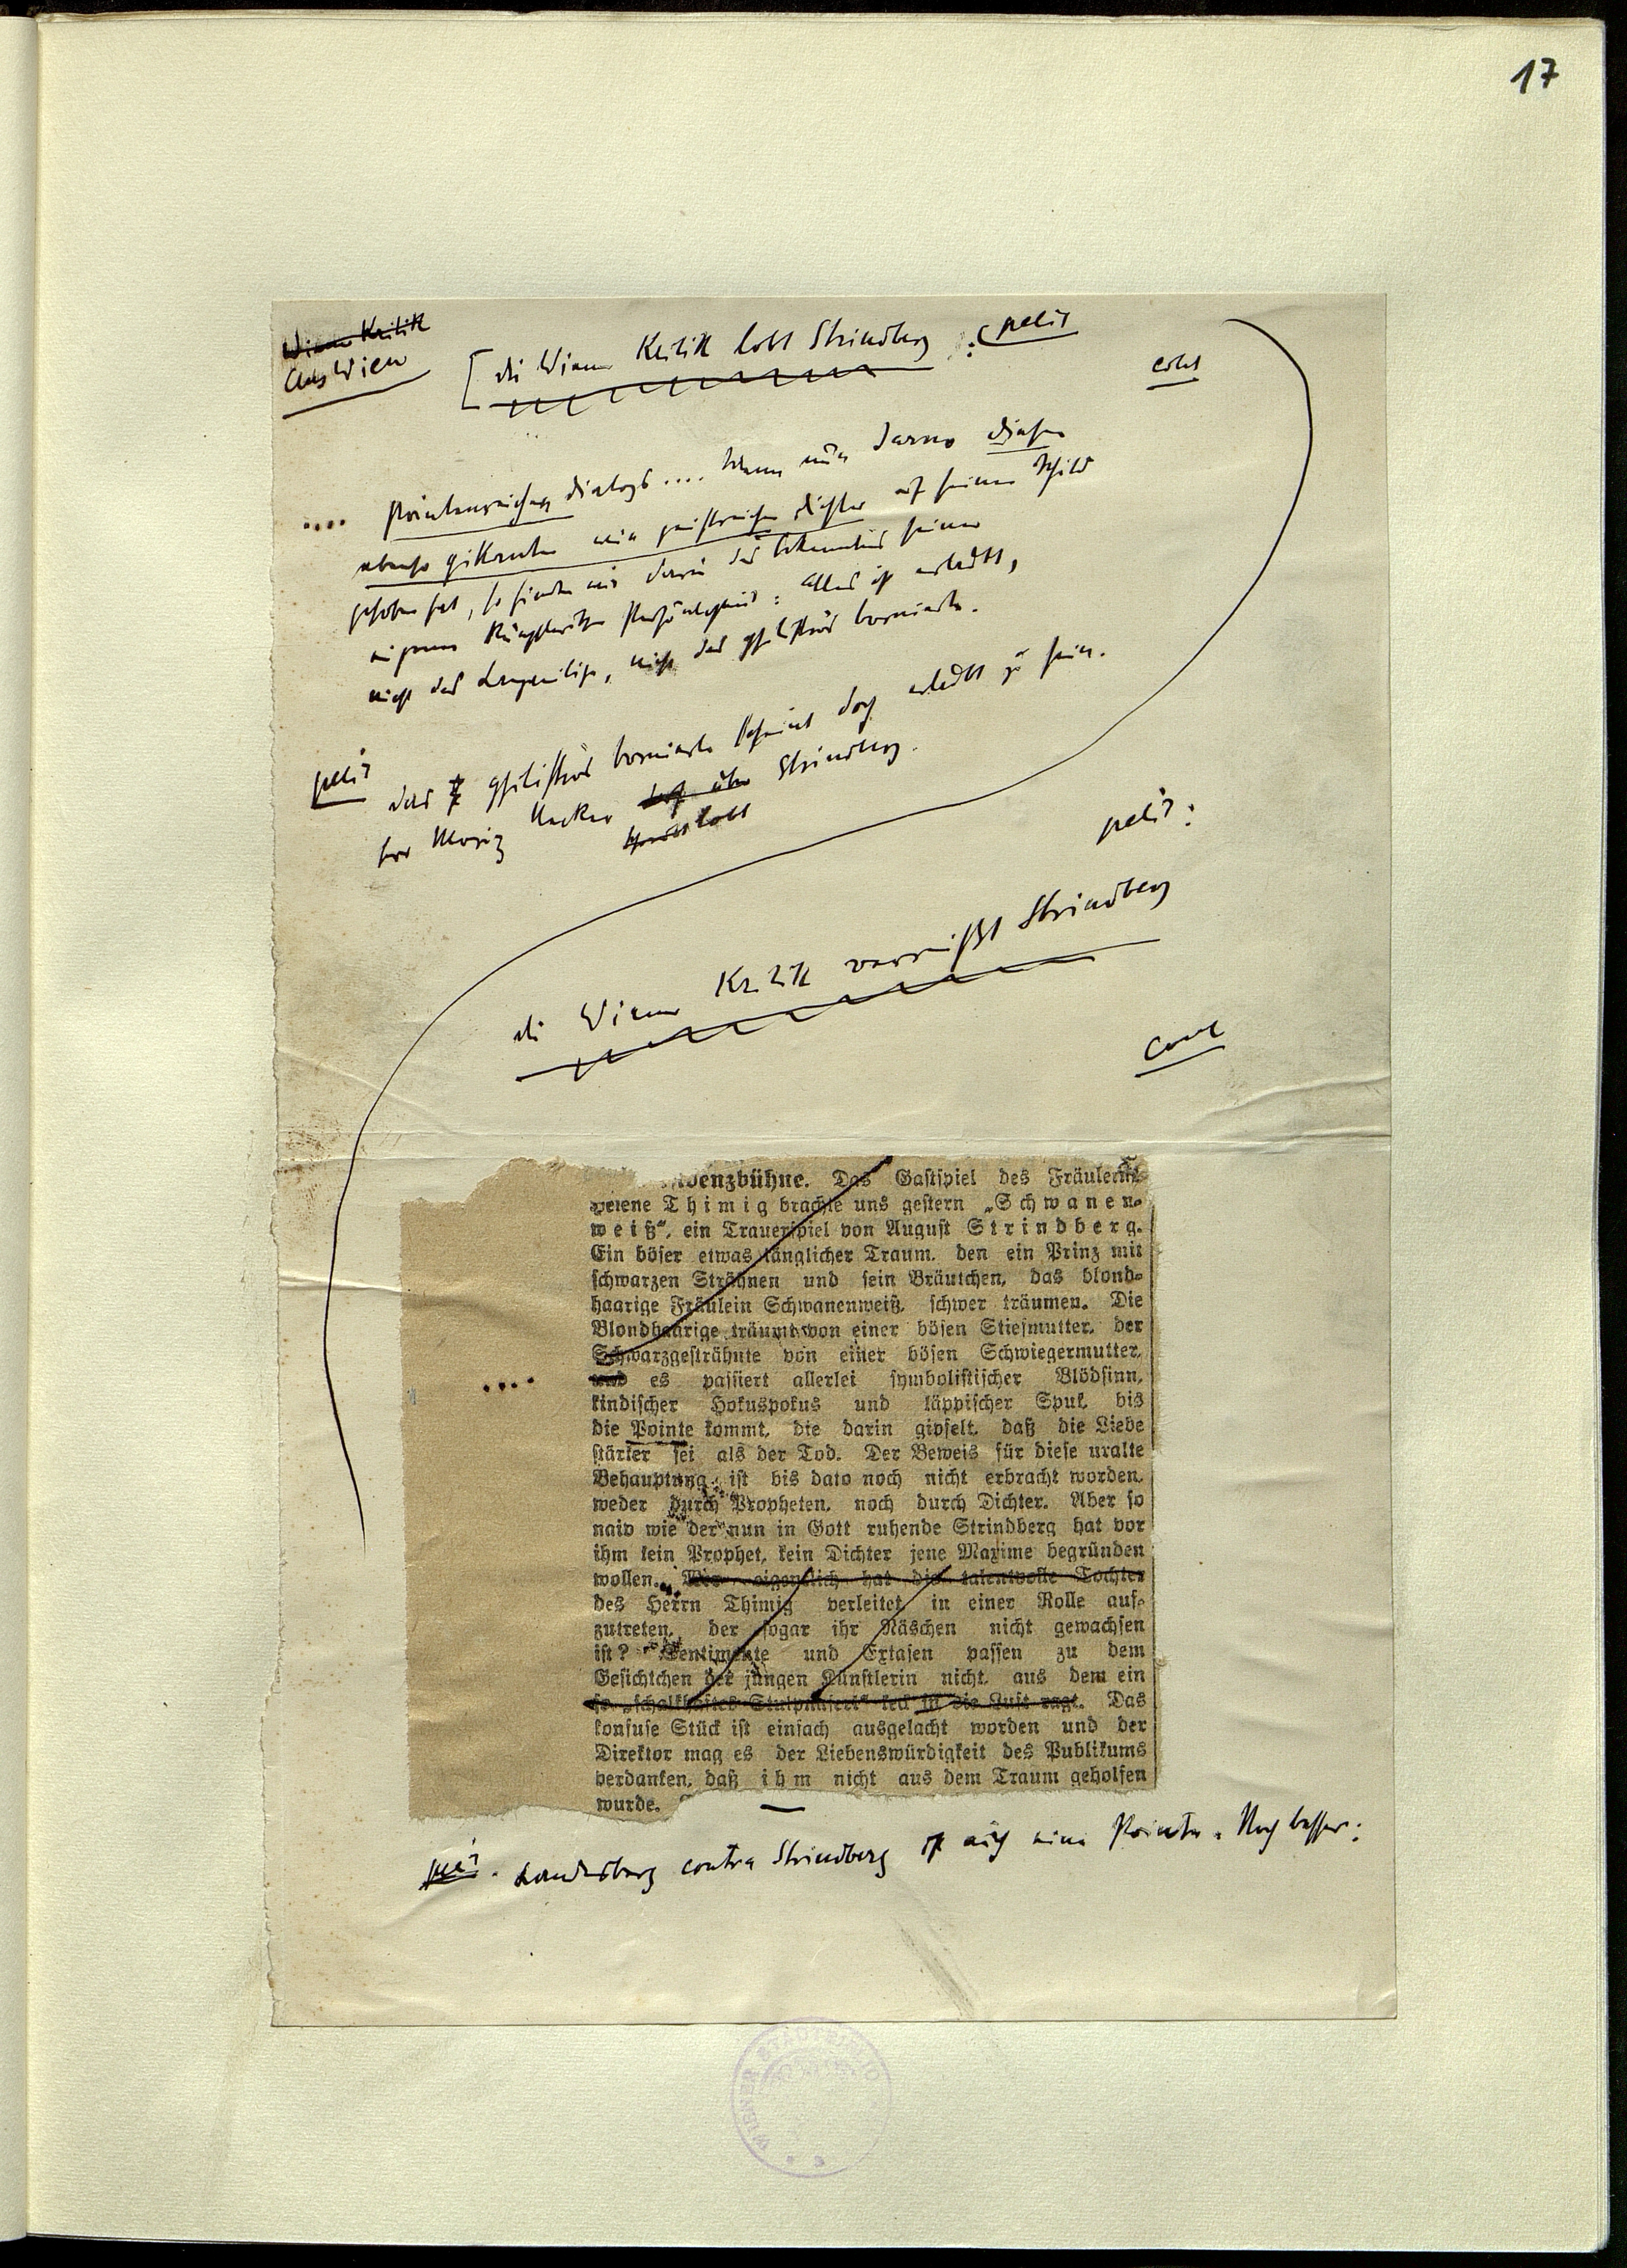 17
Wiener Kritik
Aus Wien
[ die Wiener Kritik lobt Strindberg : petit
.... pointenreichen Dialogs .... Wenn nun Jarno diesen
ebenso pikanten wie geistreichen Dichter auf seinen Schild
gehoben hat, so finden wir darin das Bekenntnis seiner
eigenen künstlerischen Persönlichkeit: Alles ist erlaubt,
nicht das Langweilige, nicht das philiströs Bornierte.
petit
Das philiströs Bornierte scheint doch erlaubt zu sein.
Herr Moriz Necker über Strindberg.
lobt
petit:
die Wiener Kritik verreißt Strindberg
denzbühne. Das Gastspiel des Fräulein
Helene Thimig brachte uns gestern „Schwanen-
weiß“, ein Trauerspiel von August Strindberg.
Ein böser etwas länglicher Traum, den ein Prinz mit
schwarzen Strähnen und sein Bräutchen, das blond-
haarige Fräulein Schwanenweiß, schwer träumen. Die
Blondhaarige träumt von einer bösen Stiefmutter, der
Schwarzgesträhnte von einer bösen Schwiegermutter,
.... und es passiert allerlei symbolistischer Blödsinn,
kindischer Hokuspokus und läppischer Spuk, bis
die Pointe kommt, die darin gipfelt, daß die Liebe
stärker sei als der Tod. Der Beweis für diese uralte
Behauptung ist bis dato noch nicht erbracht worden,
weder durch Propheten, noch durch Dichter. Aber so
naiv wie der nun in Gott ruhende Strindberg hat vor
ihm kein Prophet, kein Dichter jene Maxime begründen
wollen. Wer eigentlich hat die talentvolle Tochter
des Herrn Thimig verleitet, in einer Rolle auf-
zutreten, der sogar ihr Näschen nicht gewachsen
ist? Sentimente und Extasen passen zu dem
Gesichtchen der jungen Künstlerin nicht, aus dem ein
so „schalkhaftes Stulpnaserl“ keck in die Luft ragt. Das
konfuse Stück ist einfach ausgelacht worden und der
Direktor mag es der Liebenswürdigkeit des Publikums
verdanken, daß ihm nicht aus dem Traum geholfen
wurde.
petit. Landesberg contra Strindberg ist auch eine Pointe. Noch besser: